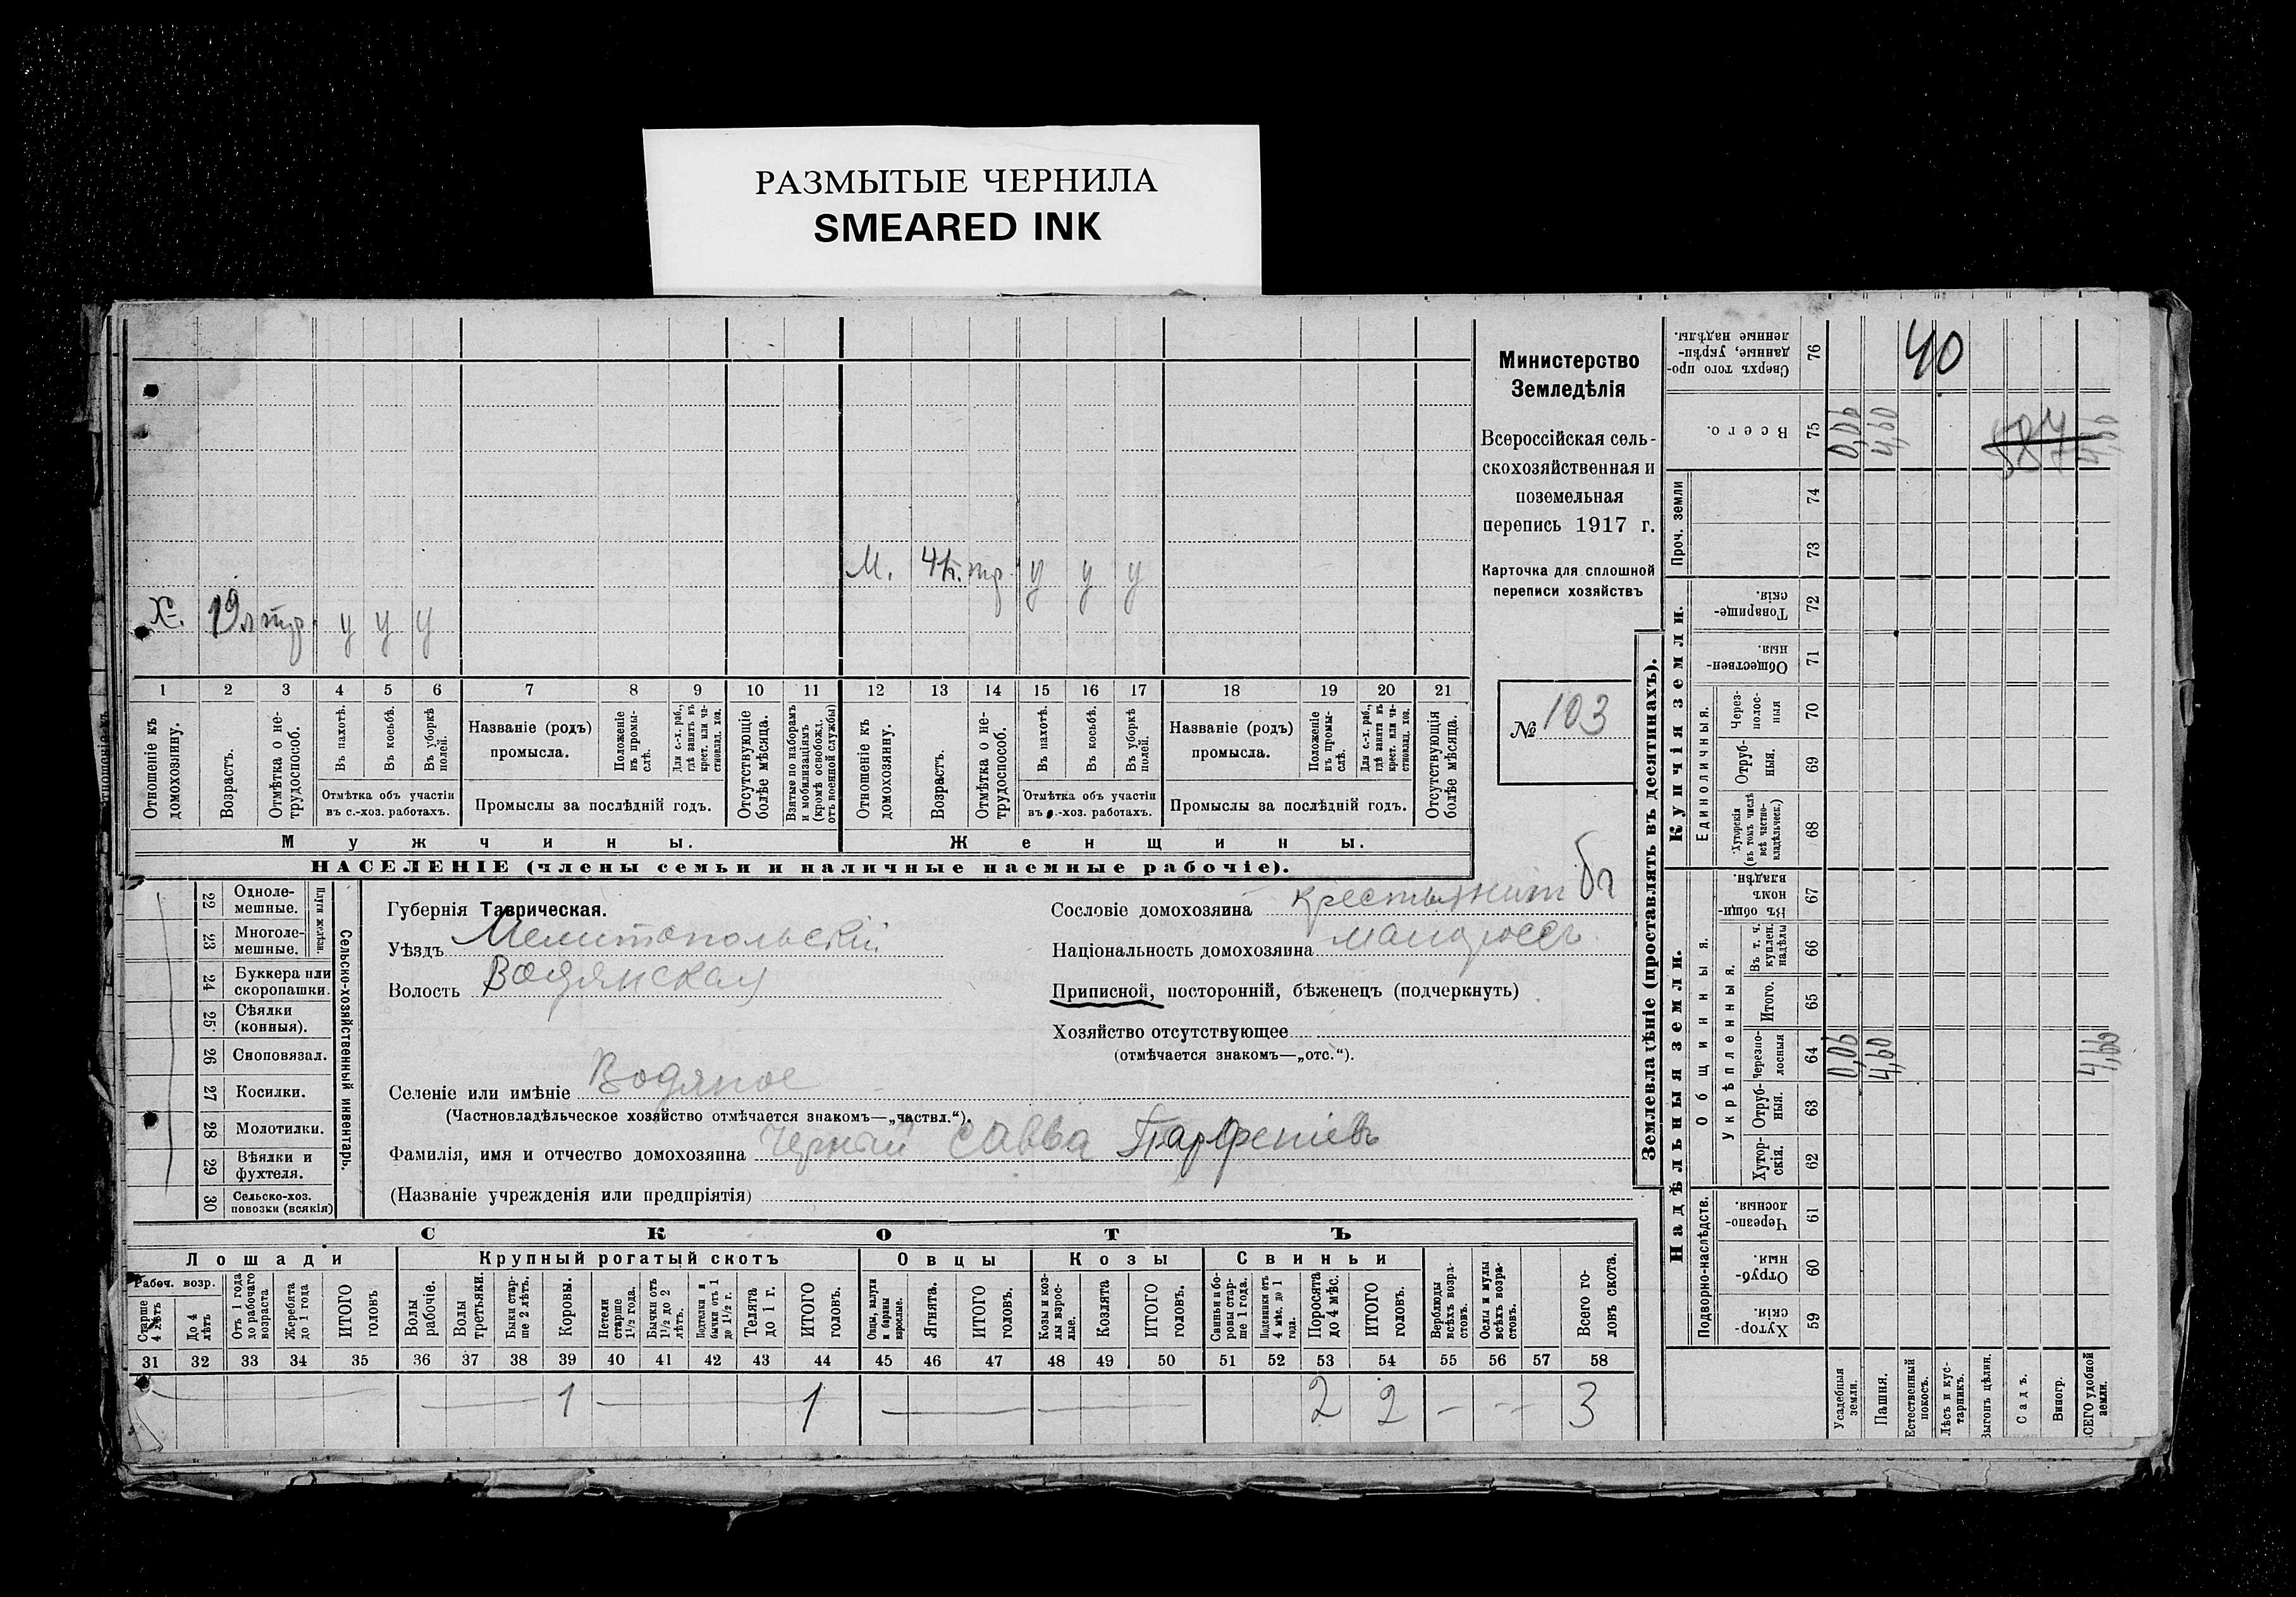 РАЗМЫТЫЕ ЧЕРНИЛА
SMEARED INK
Министерство
Земледѣлія
Всероссійская сель-
скохозяйственная и
поземельная
перепись 1917 г.
Карточка для сплошной
переписи хозяйствъ
№ 103
М. тр у у у
Х. 19 л тр. у у у
1 2 3 4 5 6 7 8 9 10 11 12 13 14 15 16 17 18 19 20 21
Отношеніе къ домохозяину.
Возрастъ.
Отмѣтка о не-трудоспособ.
Въ пахотѣ.
Въ косьбѣ.
Въ уборкѣ полей.
Отмѣтка объ участіи въ с.-хоз. работахъ.
Названіе (родъ) промысла.
Положеніе въ промы-слѣ.
Для с.-х. раб., гдѣ занятъ въ крест. или ча-стновлад. хоз.
Промыслы за послѣдній годъ.
Отсутствующіе болѣе мѣсяца.
Взятые по наборамъ и мобилизаціямъ (кромѣ освобожд. отъ военной службы)
Отношеніе къ домохозяину.
Возрастъ.
Отмѣтка о не-трудоспособ.
Въ пахотѣ.
Въ косьбѣ.
Въ уборкѣ полей.
Отмѣтка объ участіи въ с.-хоз. работахъ.
Названіе (родъ) промысла.
Положеніе въ промы-слѣ.
Для с.-х. раб., гдѣ занята въ крест. или ча-стновлад. хоз.
Промыслы за послѣдній годъ.
Отсутствующія болѣе мѣсяца.
Мужчины.
Женщины.
НАСЕЛЕНІЕ (члены семьи и наличные наемные рабочіе).
Сельско-хозяйственный инвентарь.
Плуги желѣзн.
22 Однолемешные.
23 Многолемешные.
24 Буккера или скоропашки.
25 Сѣялки (конныя).
26 Сноповязал.
27 Косилки.
28 Молотилки.
29 Вѣялки и фухтеля.
30 Сельско-хоз. повозки (всякія)
Губернія Таврическая.
Уѣздъ Мелитопольскій
Волость Водянская
Сословіе домохозяина крестьянин
Національность домохозяина малороссъ
Приписной, посторонній, бѣженецъ (подчеркнуть)
Хозяйство отсутствующее
(отмѣчается знакомъ—„отс.“).
Селеніе или имѣніе Водяное
(Частновладѣльческое хозяйство отмѣчается знакомъ—„частвл.“).
Фамилія, имя и отчество домохозяина Черный Савва Парфеніевъ
(Названіе учрежденія или предпріятія)
СКОТЪ
Лошади Крупный рогатый скотъ Овцы Козы Свиньи
Рабоч. возр.
Старше 4 лѣтъ
До 4 лѣтъ
Отъ 1 года до рабочаго возраста
Жеребята до 1 года
ИТОГО головъ
Волы рабочіе.
Волы третьяки.
Быки стар-ше 2 лѣтъ.
Коровы.
Нетели старше 1½ года.
Бычки отъ 1½ до 2 лѣтъ.
Подтелки и бычки отъ 1 до 1½ г.
Телята до 1 г.
ИТОГО головъ.
Овцы, валухи и бараны взрослые.
Ягнята.
ИТОГО головъ.
Козы и коз-лы взрос-лые.
Козлята
ИТОГО головъ.
Свиньи и бо-ровы стар-ше 1 года.
Подсвинки отъ 4 мѣс. до 1 года.
Поросята до 4 мѣс.
ИТОГО головъ.
Верблюды всѣхъ возра-стовъ.
Ослы и мулы всѣхъ возра-стовъ.
Всего го-ловъ скота.
31 32 33 34 35 36 37 38 39 40 41 42 43 44 45 46 47 48 49 50 51 52 53 54 55 56 57 58
1 1 2 2 3
Землевладѣніе (проставлять въ десятинахъ).
Надѣльныя земли.
Купчія земли.
Проч. земли
Подворно-наслѣдств.
Общинныя.
Укрѣпленныя.
Единоличныя.
76 Сверхъ того про-данные, укрѣп-ленные надѣлы.
40
75 Всего. 0,06 4,60 587 4,60
74
73
72 Товарище-скія.
71 Обществен-ныя.
70 Через-полос-ныя
69 Отруб-ныя.
68 Хуторскія (въ томъ числѣ всѣ частно-владѣльческ.)
67 Въ общин-номъ владѣн.
66 Въ т. ч. куплен. надѣлы
65 Итого.
64 Черезпо-лосныя 0,06 4,60 4,66
63 Отруб-ныя.
62 Хутор-скія.
61 Черезпо-лосныя.
60 Отруб-ныя.
59 Хутор-скія.
Усадебныя земли.
Пашня.
Естественный покосъ.
Лѣсъ и кус-тарникъ.
Выгонъ цѣлин.
Садъ.
Виногр.
ВСЕГО удобной земли.